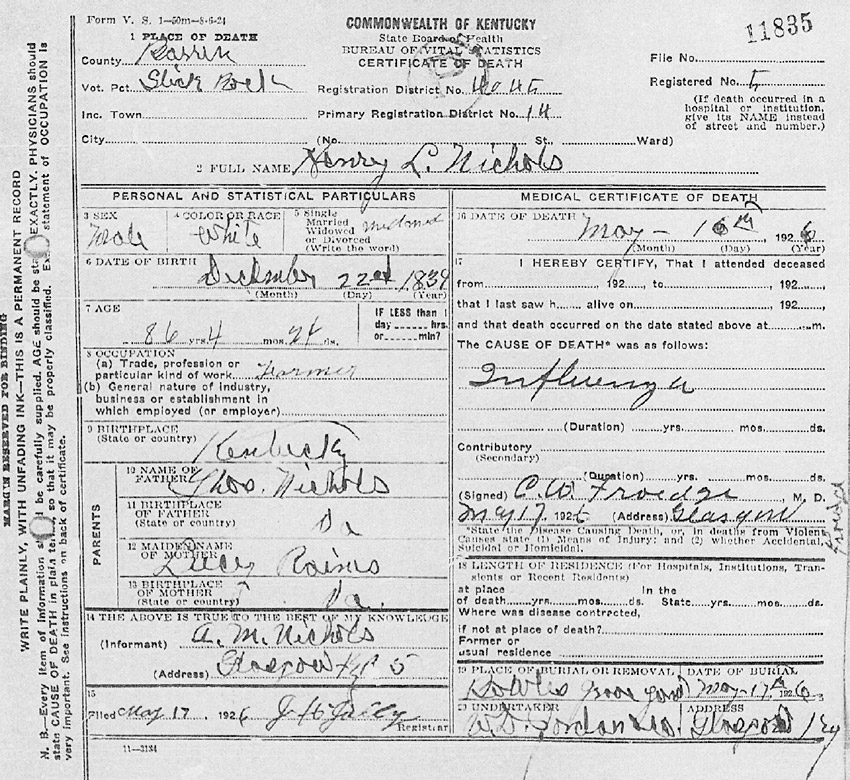 Form V. S. 1—50m—8-6-24
COMMONWEALTH OF KENTUCKY
State Board of Health
BUREAU OF VITAL STATISTICS
CERTIFICATE OF DEATH
11835
1 PLACE OF DEATH
County Barren
Vot. Pct. Slick Rock
Inc. Town
City
Registration District No.
Primary Registration District No. 14
(No. St. Ward)
File No.
Registered No. 5
(If death occurred in a
hospital or institution,
give its NAME instead
of street and number.)
2 FULL NAME Henry L. Nichols
PERSONAL AND STATISTICAL PARTICULARS
3 SEX
Male
4 COLOR OR RACE
White
5 Single
Married
Widowed
or Divorced
(Write the word)
widowed
6 DATE OF BIRTH
December 22nd 1839
(Month) (Day) (Year)
7 AGE
86 yrs. 4 mos. 24 ds.
IF LESS than 1
day ...... hrs.
or ...... min?
8 OCCUPATION
(a) Trade, profession or
particular kind of work Farmer
(b) General nature of industry,
business or establishment in
which employed (or employer)
9 BIRTHPLACE
(State or country)
Kentucky
PARENTS
10 NAME OF
FATHER
Thos. Nichols
11 BIRTHPLACE
OF FATHER
(State or country)
12 MAIDEN NAME
OF MOTHER
13 BIRTHPLACE
OF MOTHER
(State or country)
14 THE ABOVE IS TRUE TO THE BEST OF MY KNOWLEDGE
(Informant) A. M. Nichols
(Address) Glasgow Ky 5
15
Filed May 17, 1926
Registrar
11—3184
MEDICAL CERTIFICATE OF DEATH
16 DATE OF DEATH
May - 16th 1926
(Month) (Day) (Year)
17 I HEREBY CERTIFY, That I attended deceased
from , 192 , to , 192 ,
that I last saw h alive on , 192 ,
and that death occurred on the date stated above at m.
The CAUSE OF DEATH* was as follows:
Influenza
(Duration) yrs. mos. ds.
Contributory
(Secondary)
(Duration) yrs. mos. ds.
(Signed) C. W. Froedge, M. D.
May 17, 1926 (Address) Glasgow
Froedge
*State the Disease Causing Death, or, in deaths from Violent
Causes state (1) Means of Injury; and (2) whether Accidental,
Suicidal or Homicidal.
18 LENGTH OF RESIDENCE (For Hospitals, Institutions, Tran-
sients or Recent Residents)
at place In the
of death yrs. mos. ds. State yrs. mos. ds.
Where was disease contracted,
if not at place of death?
Former or
usual residence
19 PLACE OF BURIAL OR REMOVAL DATE OF BURIAL
Grave yard May-17th 1926
20 UNDERTAKER ADDRESS
Glasgow Ky
MARGIN RESERVED FOR BINDING
WRITE PLAINLY, WITH UNFADING INK—THIS IS A PERMANENT RECORD
N. B.—Every item of information be carefully supplied. AGE should be EXACTLY. PHYSICIANS should
state CAUSE OF DEATH in plain so that it may be properly classified. statement of OCCUPATION is
very important. See instructions on back of certificate.